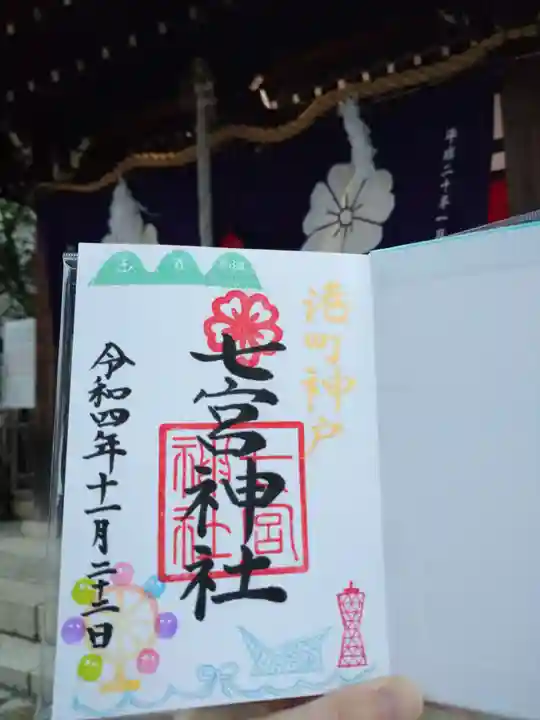 港町神戸
七宮神社
七宮
神社
令和四年十一月二十三日
平成二十年一月